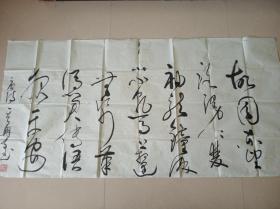 故园东望
路漫漫双
袖龙钟泪
不乾马上逢
無纸笔
凭君传语
报平安
唐诗